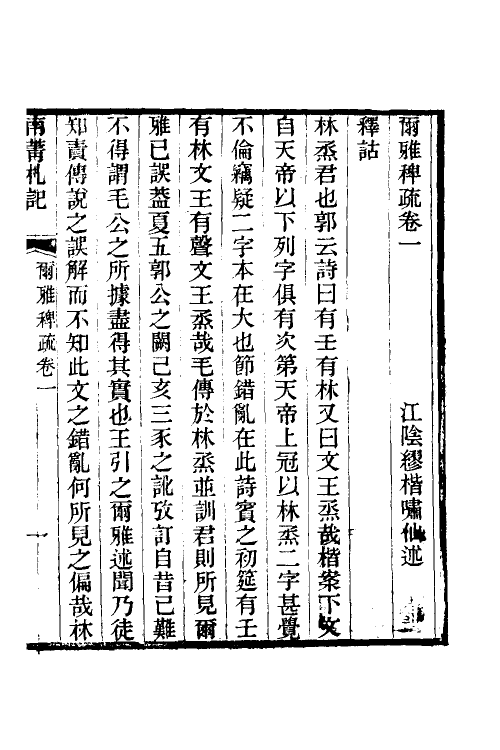 爾雅稗疏卷一
江陰繆楷嘯仙述
釋詁
林烝君也郭云詩曰有壬有林又曰文王烝哉楷案下文
自天帝以下列字俱有次第天帝上冠以林烝二字甚覺
不倫竊疑二字本在大也節錯亂在此詩賓之初筵有壬
有林文王有聲文王烝哉毛傳於林烝並訓君則所見爾
雅已誤蓋夏五郭公之闕己亥三豕之訛攷訂自昔已難
不得謂毛公之所據盡得其實也王引之爾雅述聞乃徒
知責傳說之誤解而不知此文之錯亂何所見之偏哉林
南菁札記
爾雅稗疏卷一
一